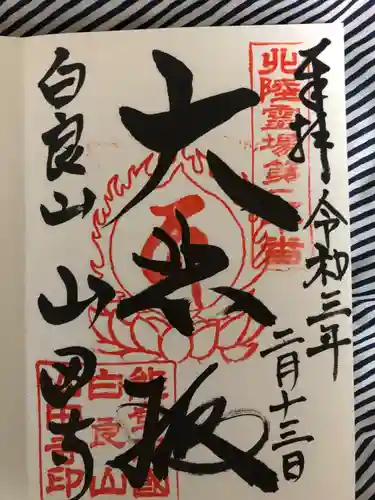 奉拝
令和三年
二月十三日
北陸靈場第
番
大悲殿
白良山
山田寺
能登國
白良山
山田寺印